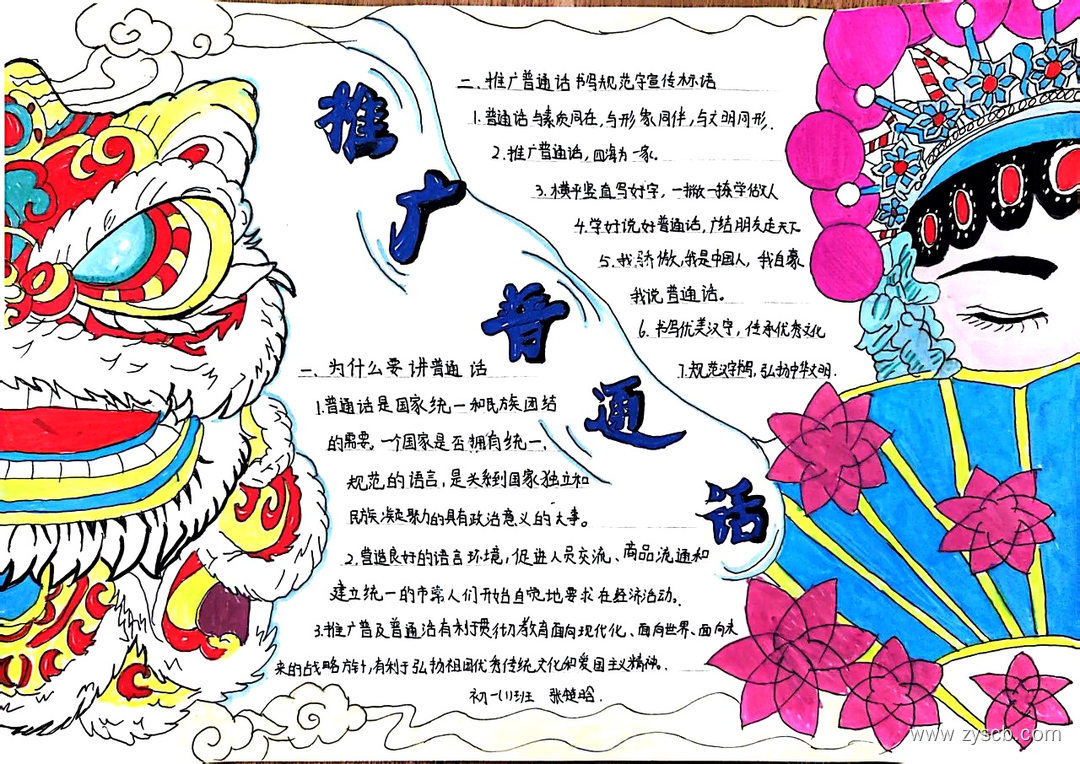 推广普通话
一、为什么要讲普通话
1.普通话是国家统一和民族团结
的需要。一个国家是否拥有统一、
规范的语言,是关系到国家独立和
民族凝聚力的具有政治意义的大事。
2.营造良好的语言环境,促进人员交流、商品流通和
建立统一的市常人们开始自觉地要求在经济活动。
3.推广普及普通话有利于贯彻教育面向现代化、面向世界、面向未
来的战略,有利于弘扬祖国优秀传统文化和爱国主义精神。
初一(1)班 张楚晗.
二、推广普通话书写规范字宣传标语
1.普通话与素质同在,与形象同伴,与文明同形.
2.推广普通话,四海为一家。
3.横平竖直写好字,一撇一捺学做人
4.学好说好普通话,广结朋友走天下
5.我骄傲,我是中国人,我自豪
我说普通话。
6.书写优美汉字,传承优秀文化
7.规范汉字,弘扬中华文明.
www.zyscb.com